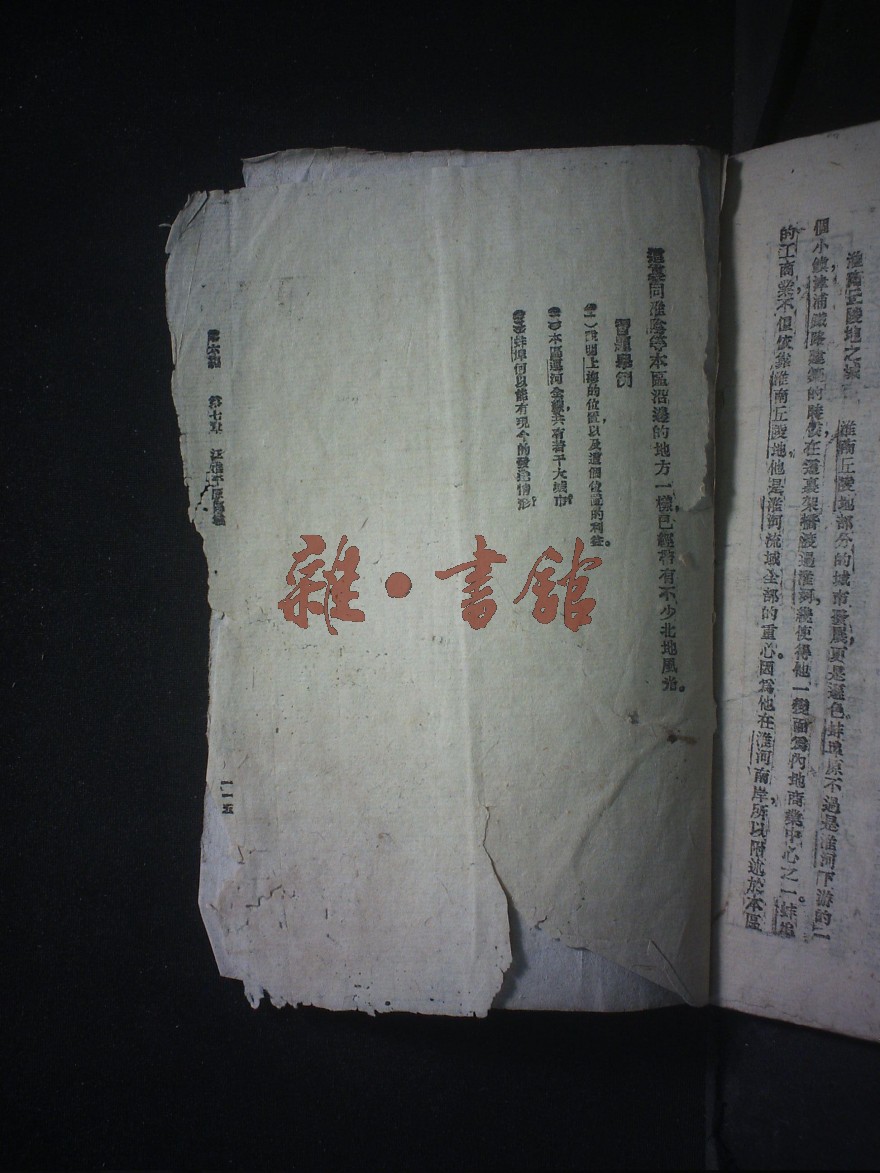 淮南丘陵地之城市
淮南丘陵地部分的城市發展更是遜色蚌埠原不過是淮河下游的一
個小鎮津浦鐵路建築的時候在這裏架橋渡過淮河纔使得他一變而爲內地商業中心之一。蚌埠
的工商業不但依靠淮南丘陵地。他是淮河流域全部的重心。因爲他在淮河南岸所以附述於本區
這裏同淮陰等本區沿邊的地方一樣已經帶有不少北地風光。
習題舉例
(一)說明上海的位置以及這個位置的利益。
(二)本區運河全線共有若干大城市
(三)蚌埠何以能有現今的發達情形
第六編 第七章 江淮平原區域
一一五
雜·書館